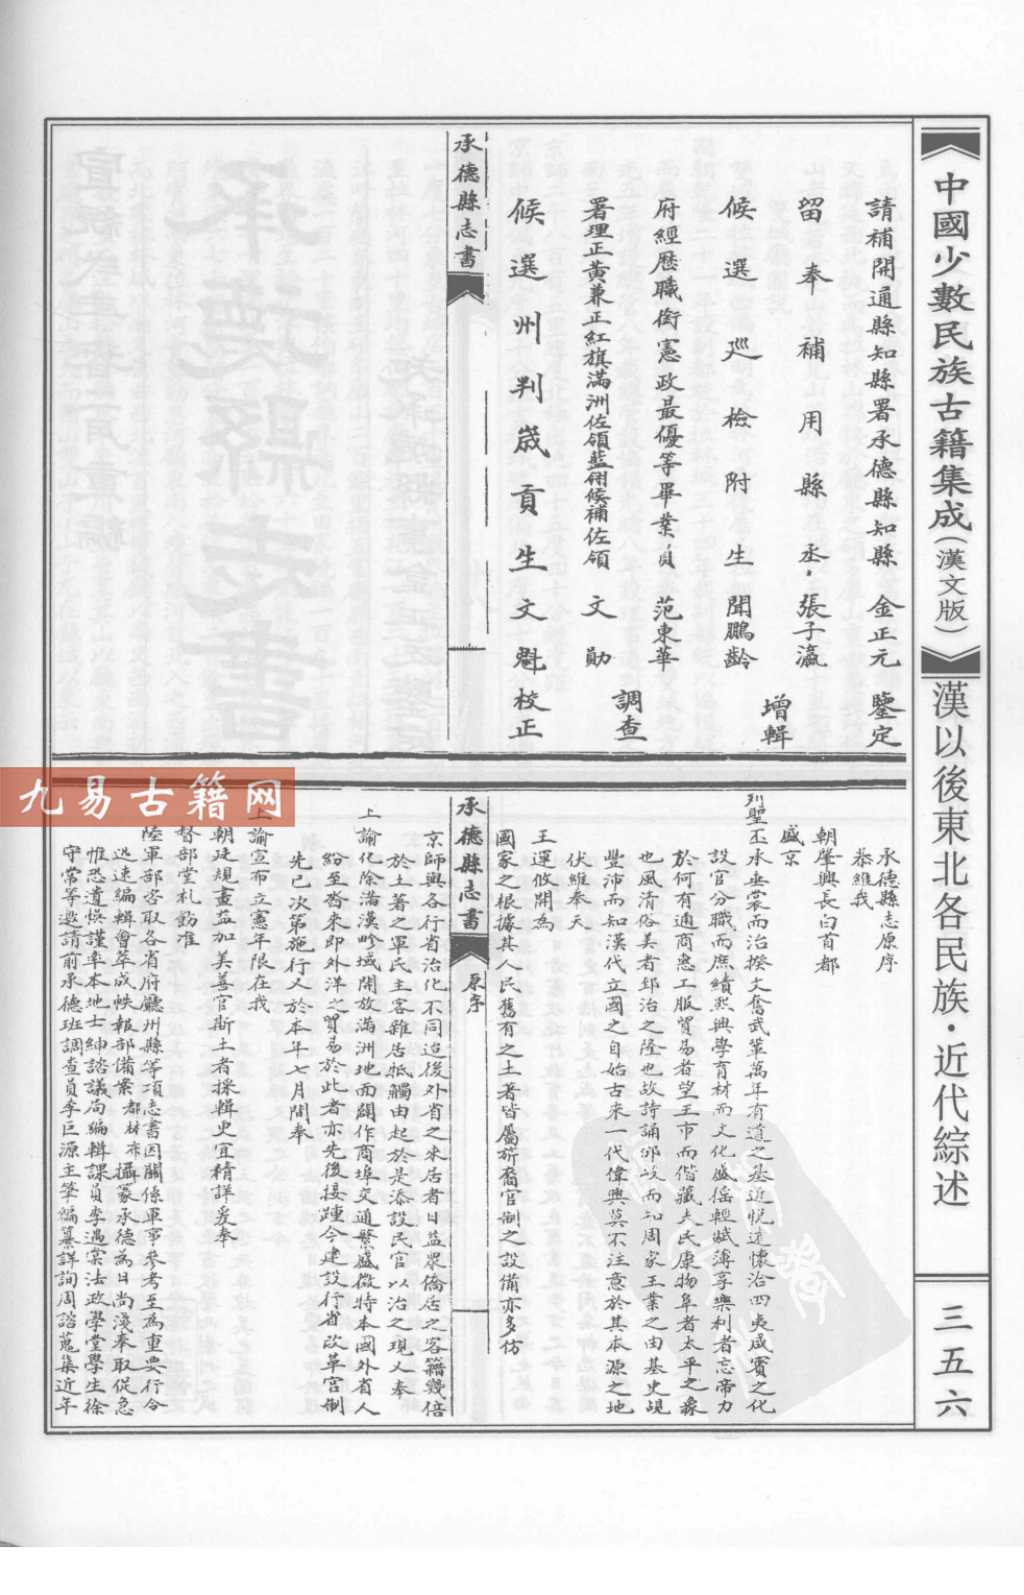 《中國少數民族古籍集成（漢文版）》漢以後東北各民族·近代綜述
三五六
請補開通縣知縣署承德縣知縣 金正元 鑒定
留奉補用縣丞 張子瀛
候選巡檢附生 聞鵬齡
增輯
府經歷職銜憲政最優等畢業員 范東華
署理正黃兼正紅旗滿洲佐領藍翎候補佐領 文勛
調查
候選州判歲貢生 文魁 校正
承德縣志書
一
承德縣志原序
恭維我
朝肇興長白首都
盛京
列聖丕承垂裳而治揆文奮武鞏萬年有道之基近悅遠懷洽四夷咸賓之化
設官分職而庶績熙興學育材而文化盛徭輕賦薄享樂利者忘帝力
於何有通商惠工服賈易者望王市而偕藏夫民康物阜者太平之象
也風清俗美者郅治之隆也故詩誦邠岐而知周家王業之由基史覘
豐沛而知漢代立國之自始古來一代偉興莫不注意於其本源之地
伏維奉天
王運攸開為
國家之根據其人民舊有之土著皆屬旂裔官制之設備亦多仿
承德縣志書
原序
一
京師與各行省治化不同迨後外省之來居者日益眾僑居之客籍幾倍
於土著之軍民主客雜居牴觸由起於是添設民官以治之現又奉
上諭化除滿漢畛域開放滿洲地面闢作商埠交通繁盛微特本國外省人
紛至沓來即外洋之貿易於此者亦先後接踵今建設行省改革官制
先已次第施行又於本年七月間奉
上諭宣布立憲年限在我
朝廷規畫益加美善官斯土者採輯史宜精詳爰奉
督部堂札飭准
陸軍部咨取各省府廳州縣等項志書因關係軍事參考至為重要行令
迅速編輯會萃成帙報部備案都林布攝篆承德為日尚淺奉取從急
惟恐遺悞謹率本地士紳諮議局編輯課員李遇棠法政學堂學生徐
守常等邀請前承德班調查員李巨源主筆編纂詳詢周諮蒐集近年
九易古籍网